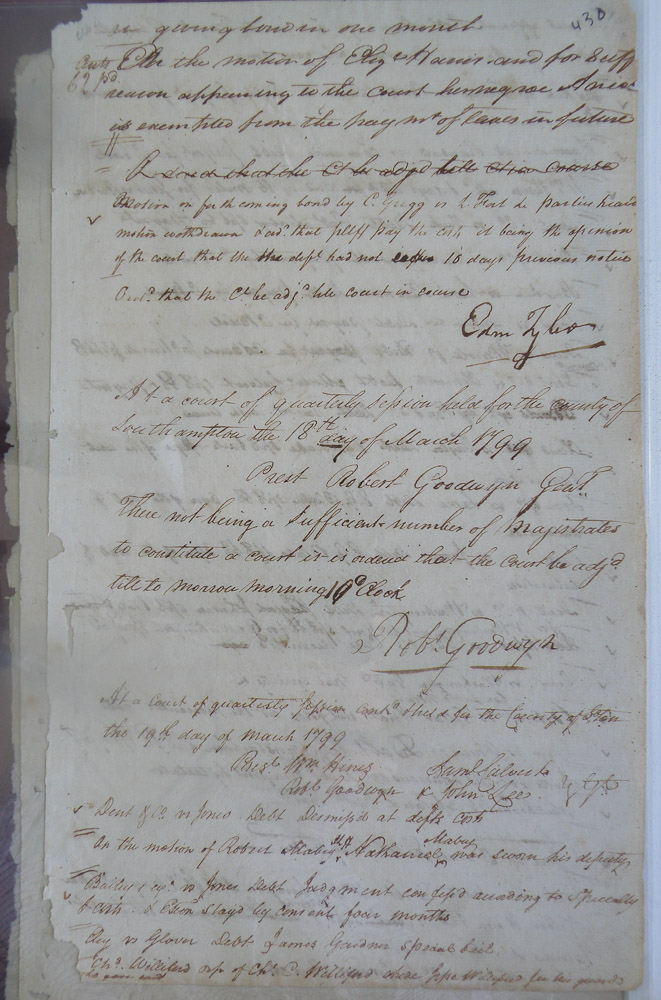 430
giving bond in one month
On the motion of Eliz. Harris and for Suff.
reason appearing to the court her negroe
is exempted from the paymt. of taxes in future
that the Ct be adjd till Ct in Course
Motion on forthcoming bond by C. Gregg vs
motion withdrawn & ord. that pltff pay the costs it being the opinion
of the court that the the deft had not 10 days previous notice
Ord. that the Ct. be adj. till court in course
Edm Tyler
At a court of quarterly Session held for the county of
Southampton the 18th day of March 1799
Prest Robert Goodwyn Gent.
There not being a sufficient number of Magistrates
to constitute a court it is ordered that the Court be adjd.
till to morrow morning 10 oClock
Robt. Goodwyn
At a Court of quarterly Session cont. & held for the County of
the 19th day of march 1799
Prest. Wm. Hines Saml Calvert
Robt Goodwyn & John Lee
Dent & Co. vs Jones Debt Dismissd at defts costs
On the motion of Robert Mabry Nathaniel Mabry was sworn his deputy
Bailey vs Jones Debt Judgment confess'd according to Specialty
& costs & Exon stayd by consent four months
vs Glover Debt James Gardner special bail
Chs. Williford orp of Chs. C. Williford chose Williford for her guardn